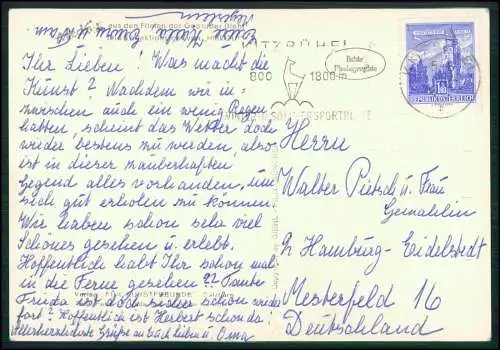 aus den Filmen der Gebrüder Diehl
Ihr Lieben! Was macht die
Kunst? Nachdem wir in-
zwischen auch ein wenig Regen
hatten, scheint das Wetter doch
wieder bestens zu werden, also
ist in dieser zauberhaften
Gegend alles vorhanden, um
sich gut erholen zu können.
Wir haben schon sehr viel
Schönes gesehen u. erlebt.
Hoffentlich habt Ihr schon mal
in die Ferne gesehen?? Tante
Frida ist doch sicher schon wieder
fort? Hoffentlich ist Herbert schon da!
Allerherzlichste Grüße an Euch lieben u. Oma
KITZBÜHEL
800 1800 m
WINTER- U. SOMMERSPORTPLATZ
REPUBLIK ÖSTERREICH
Herrn
Walter Pietsch u. Frau
Gemahlin
2 Hamburg-Eidelstedt
Mesterfeld 16
Deutschland